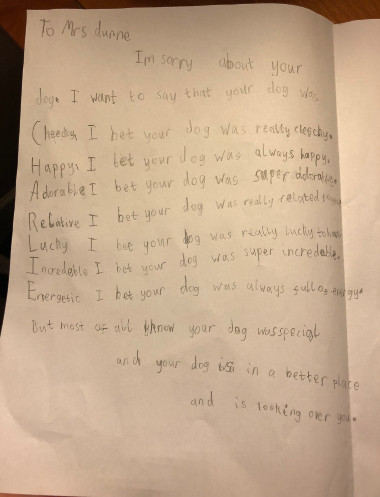 To Mrs dunne
Im sorry about your
dog. I want to say that your dog was
Cheeky, I bet your dog was really cleechy.
Happy, I bet your dog was always happy.
Adorable I bet your dog was super adorable.
Relative I bet your dog was really related
Lucky I bet your dog was really lucky to
Incredable I bet your dog was super incredable.
Energetic I bet your dog was always full of energy.
But most of all know your dog was special
and your dog is in a better place
and is looking over you.